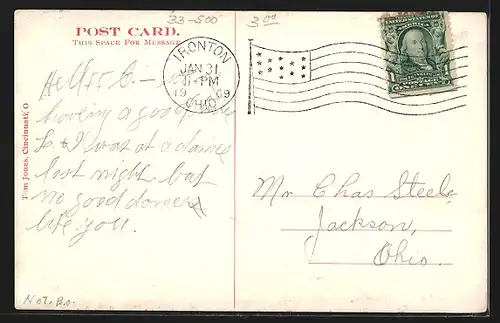 33-500
3.00
POST CARD.
THIS SPACE FOR MESSAGE
IRONTON
JAN 31
1-PM
1909
OHIO
UNITED STATES OF AMERICA
Hello C-
having a good time
I was at a dance
last night but
no good dancers
like you.
Mr Chas Steele
Jackson,
Ohio.
Tom Jones, Cincinnati, O
N.O.T. B.O.